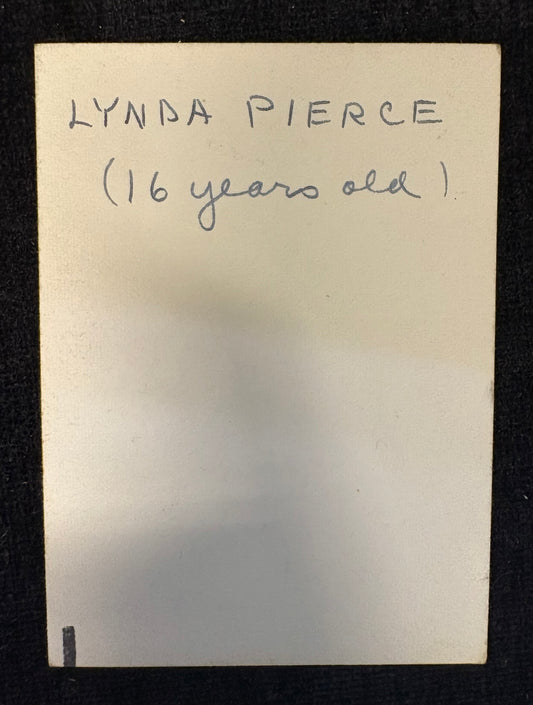 LYNDA PIERCE
(16 years old)